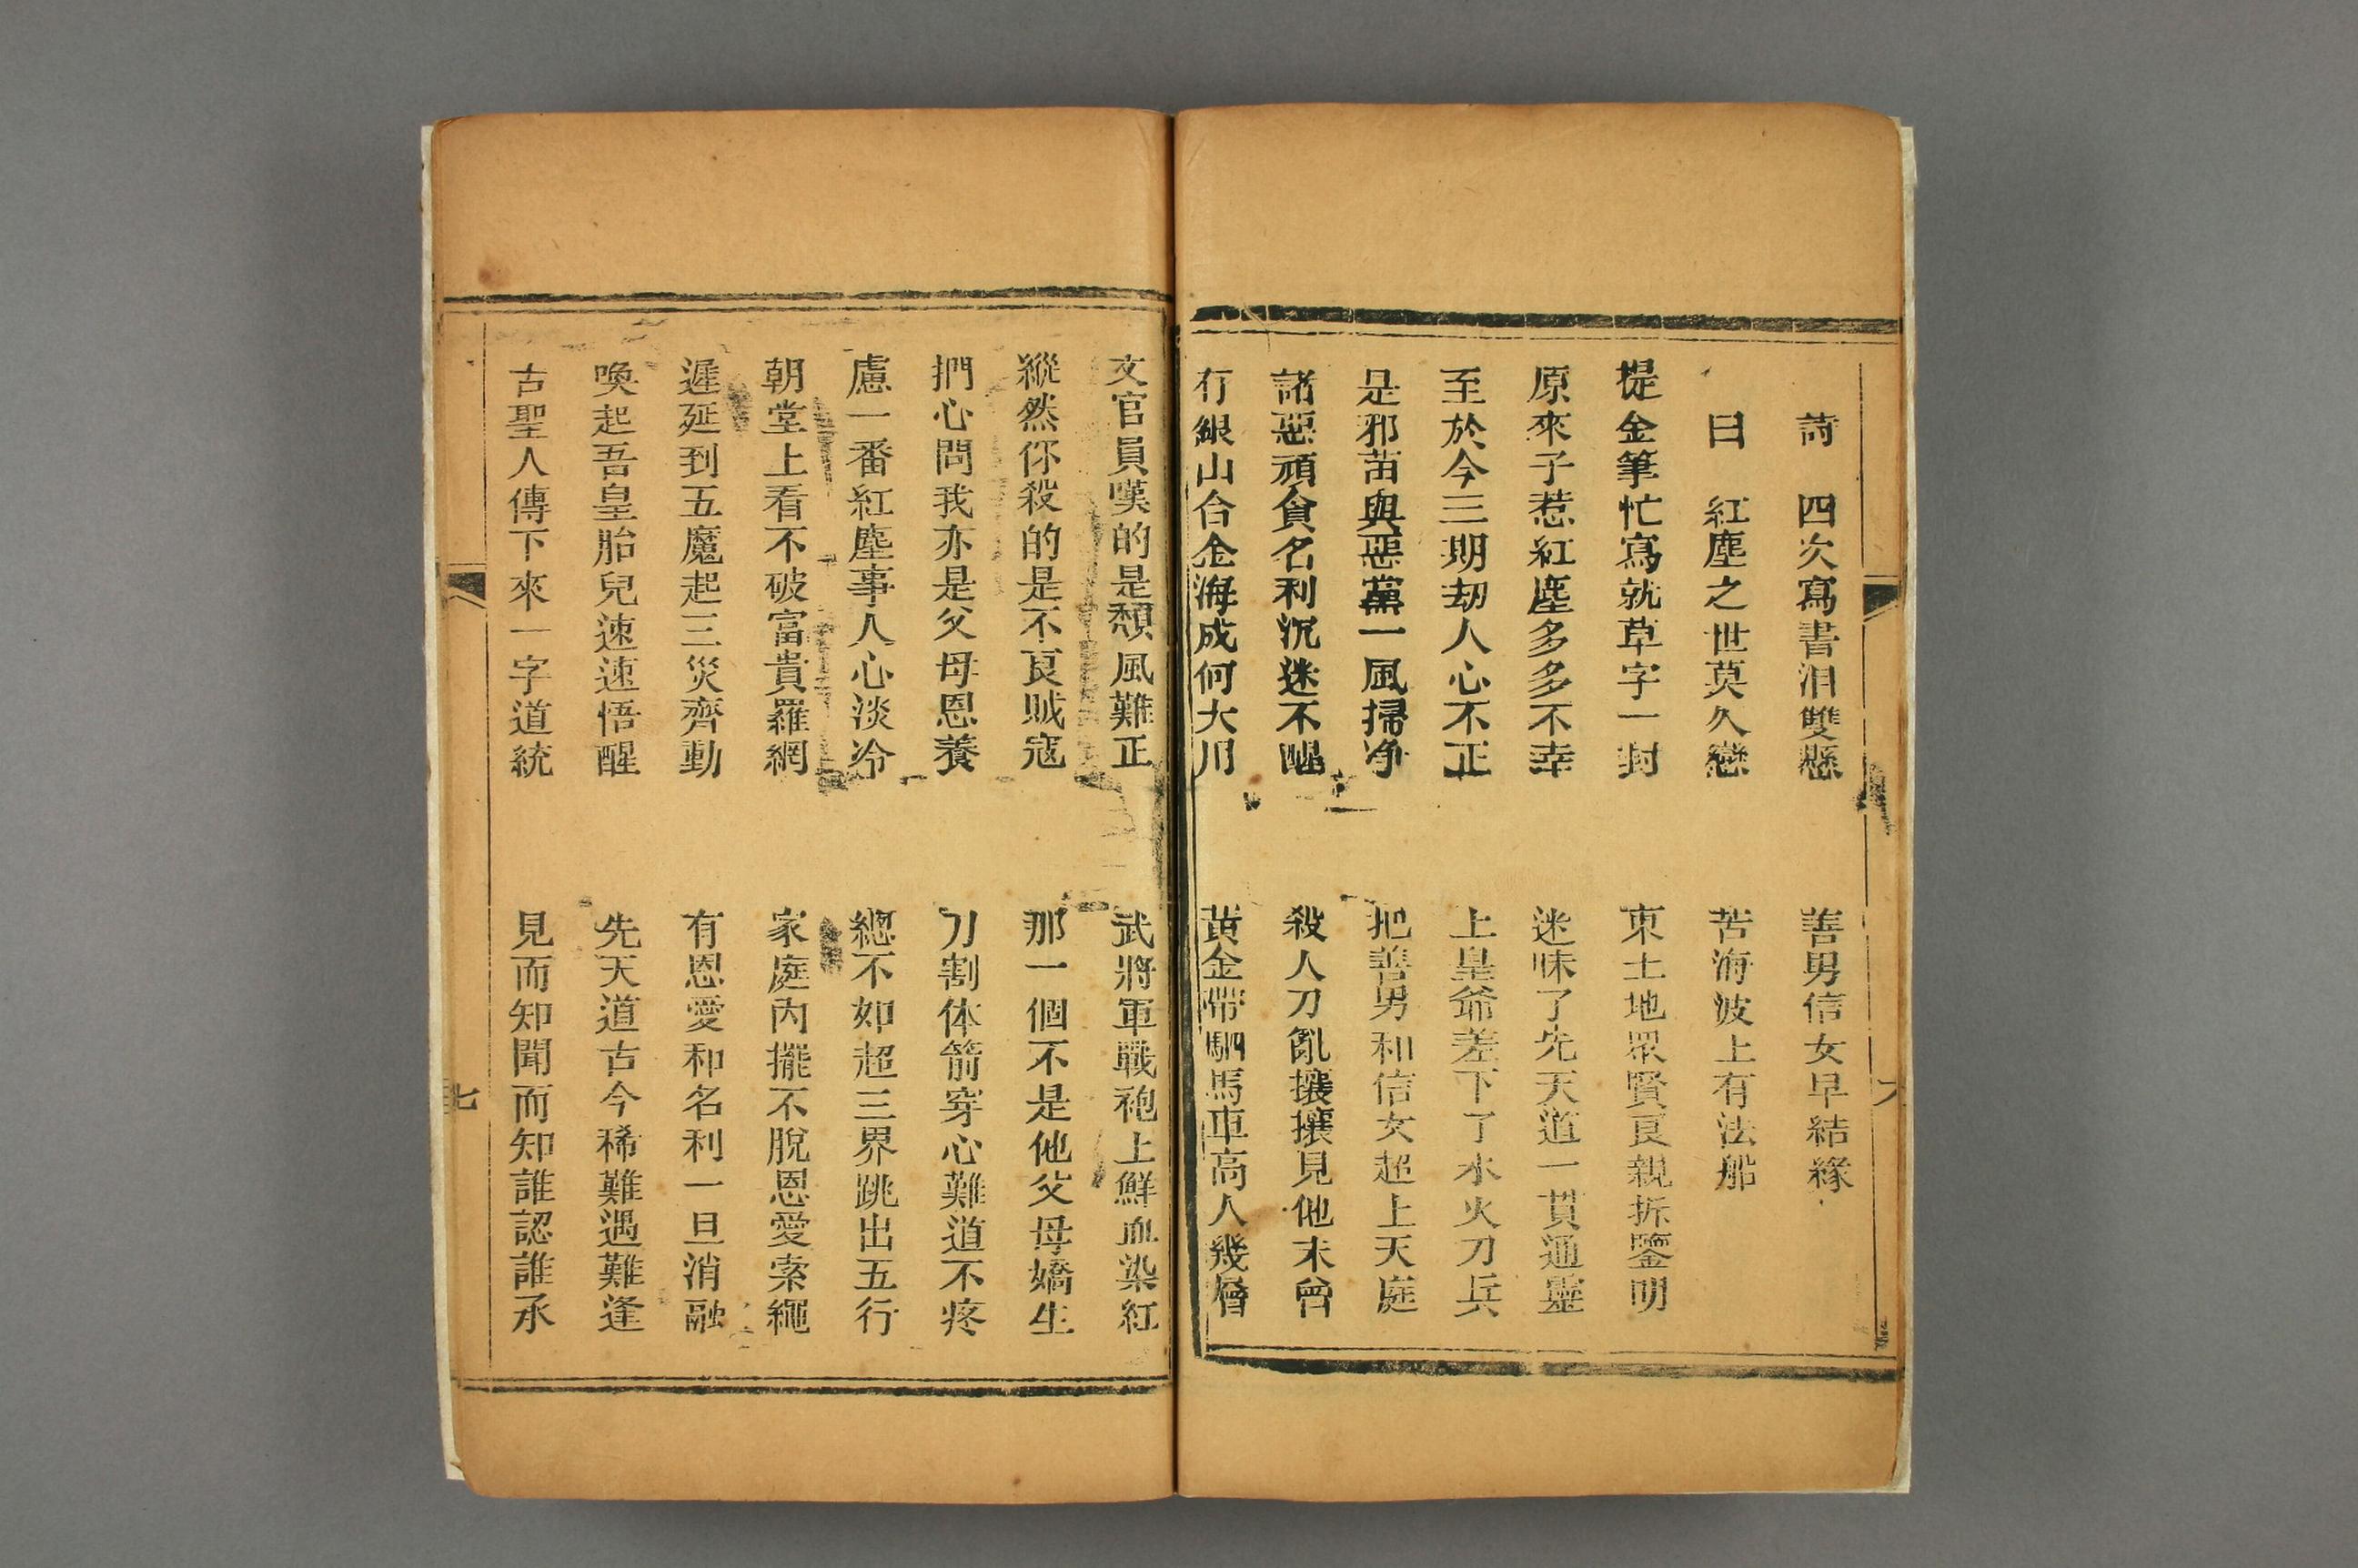 詩　四次寫書泪雙懸　善男信女早結緣
曰　紅塵之世莫久戀　苦海波上有法船
提金筆忙寫就草字一封　東土地眾賢良親拆鑒明
原來子惹紅塵多多不幸　迷昧了先天道一貫通靈
至於今三期劫人心不正　上皇爺差下了水火刀兵
是邪苗與惡黨一風掃净　把善男和信女超上天庭
諸惡頑貪名利沉迷不醒　殺人刀亂攘攘見他未曾
有銀山合金海成何大用　黃金帶駟馬車高人幾層
文官員嘆的是頹風難正　武將軍戰袍上鮮血染紅
縱然你殺的是不良賊寇　那一個不是他父母嬌生
捫心問我亦是父母恩養　刀割体箭穿心難道不疼
慮一番紅塵事人心淡冷　總不如超三界跳出五行
朝堂上看不破富貴羅網　家庭內擺不脫恩愛索繩
遲延到五魔起三災齊動　有恩愛和名利一旦消融
喚起吾皇胎兒速速悟醒　先天道古今稀難遇難逢
古聖人傳下來一字道統　見而知聞而知誰認誰承
七